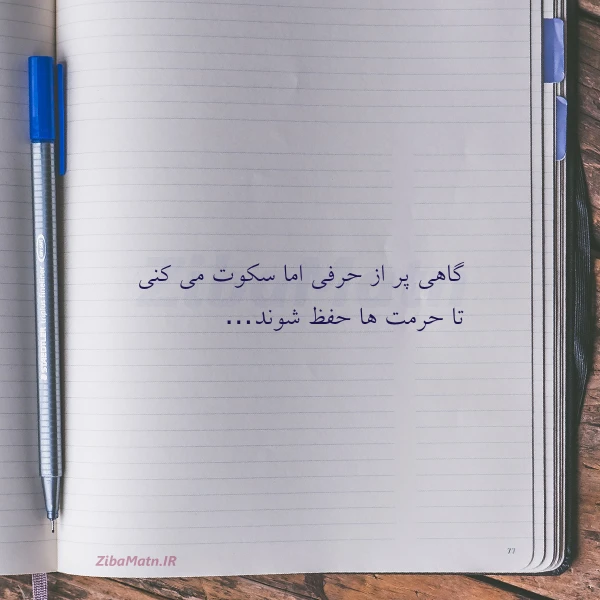 گاهی پر از حرفی اما سکوت می کنی
تا حرمت ها حفظ شوند...
ZibaMatn.IR